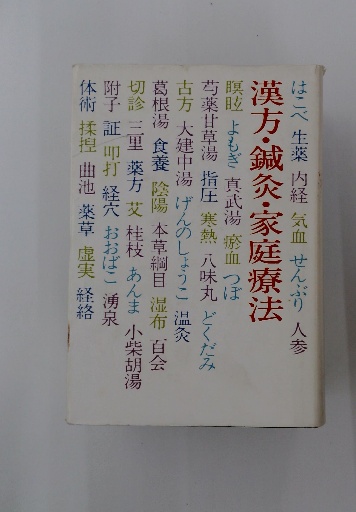 はこべ 生薬 内経 気血 せんぶり 人参
漢方・鍼灸・家庭療法
瞑眩 よもぎ 真武湯 瘀血 つぼ
芍薬甘草湯 指圧 寒熱 八味丸 どくだみ
古方 大建中湯 げんのしょうこ 温灸
葛根湯 食養 陰陽 本草綱目 湿布 百会
切診 三里 薬方 艾 桂枝 あんま 小柴胡湯
附子 証 叩打 経穴 おおばこ 湧泉
体術 揉捏 曲池 薬草 虚実 経絡